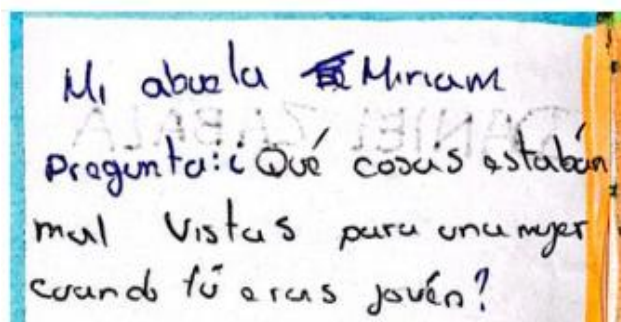 Mi abuela Miriam
DANIEL ZABALA
Pregunta: ¿Qué cosas estabán
mal vistas para una mujer
cuando tú eras jovén?